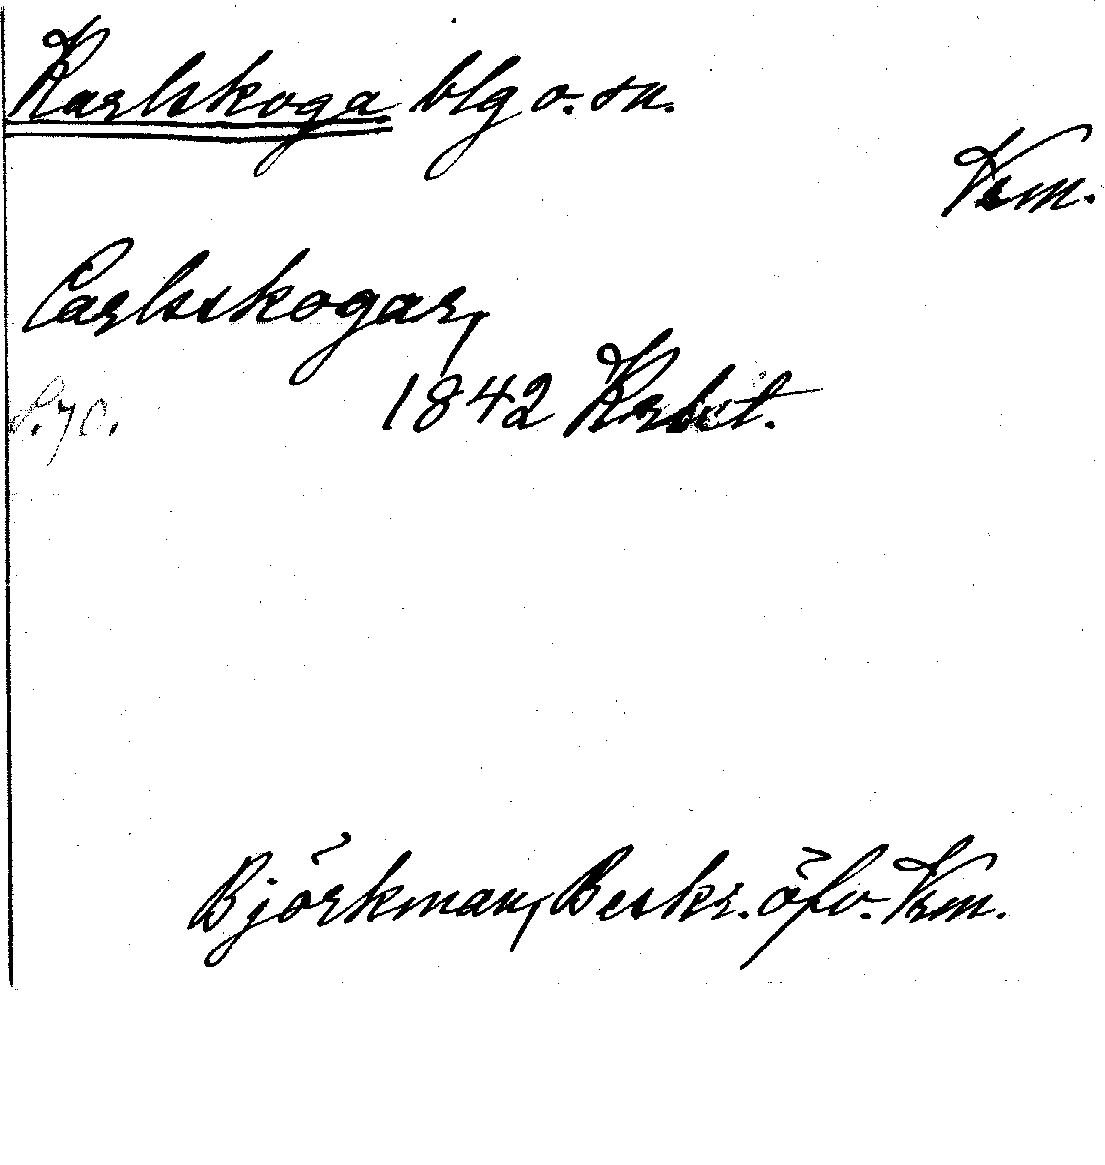 Karlskoga blg o. sn.
Vrm.
Carlsskogar,
s. 70.
1842 Krbst.
Björkman, Beskr. öfv. Vrm.